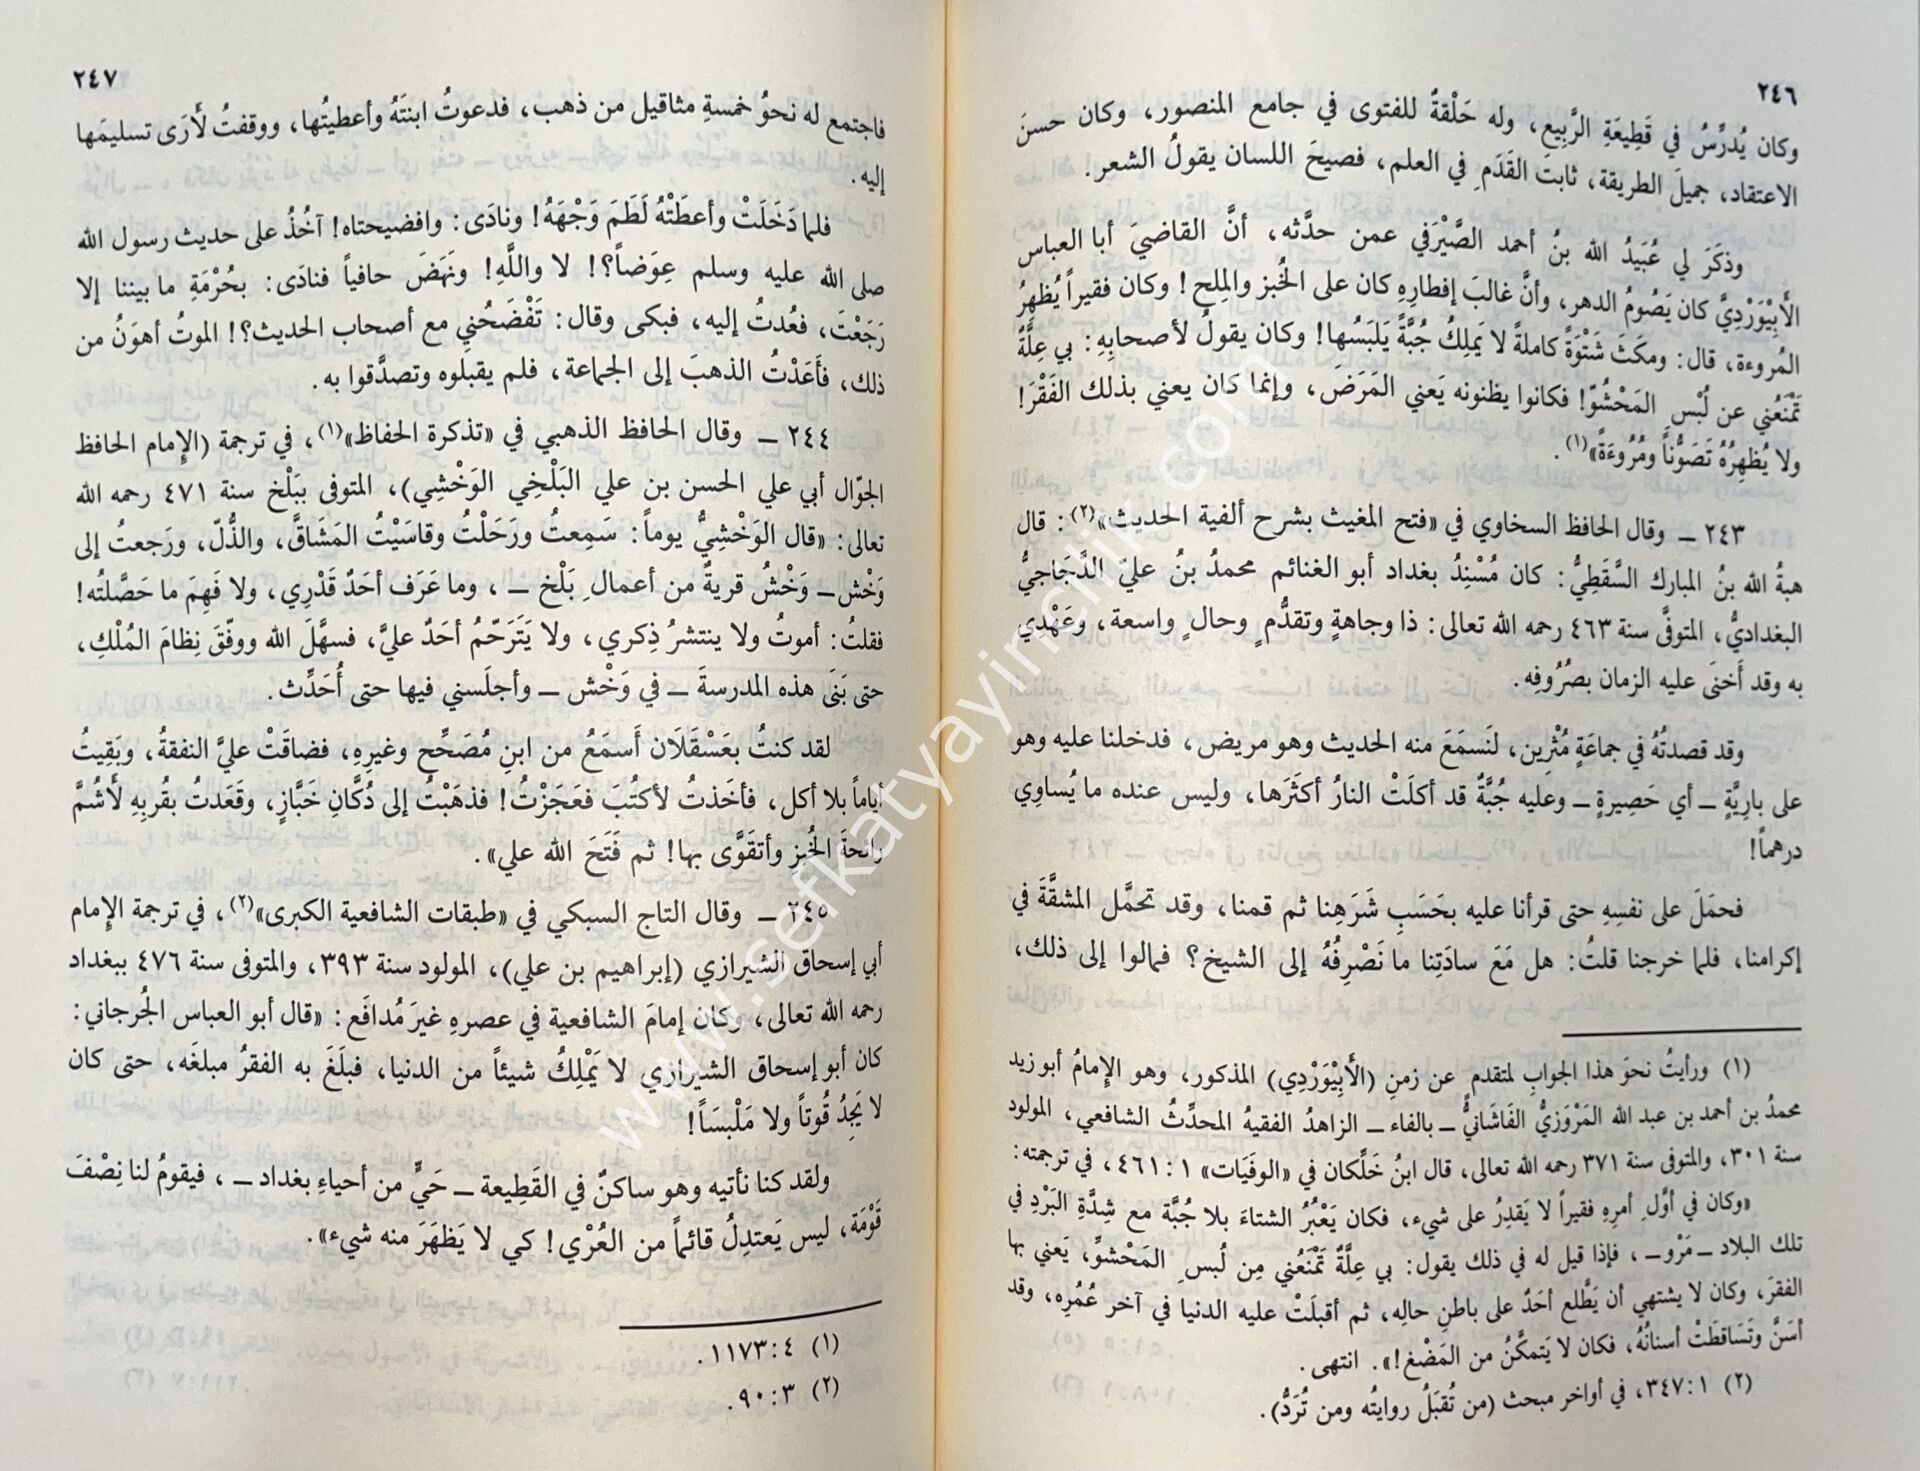 ٢٤٦
وكان يُدرِّسُ في قَطِيعَةِ الرَّبِيع، وله حَلْقةٌ للفتوى في جامع المنصور، وكان حسنَ
الاعتقاد، جميلَ الطريقة، ثابتَ القَدَمِ في العلم، فصيحَ اللسان يقولُ الشعر.
وذكَرَ لي عُبَيدُ الله بنُ أحمد الصَّيْرَفي عمن حدَّثه، أنَّ القاضيَ أبا العباس
الأَبِيْوَرْدِيَّ كان يَصُومُ الدهر، وأنَّ غالبَ إفطارِهِ كان على الخُبز والمِلح! وكان فقيراً يُظهِرُ
المُروءة، قال: ومكَثَ شَتْوَةً كاملةً لا يَملِكُ جُبَّةً يَلبَسُها! وكان يقولُ لأصحابِهِ: بي عِلَّةٌ
تَمْنَعُني عن لُبْسِ المَحْشُوّ! فكانوا يظنونه يَعني المَرَضَ، وإنما كان يعني بذلك الفَقْرَ!
ولا يُظهِرُهُ تَصَوُّناً ومُرُوءَةً»(١).
٢٤٣ ــ وقال الحافظ السخاوي في «فتح المغيث بشرح ألفية الحديث»(٢): قال
هبةُ الله بنُ المبارك السَّقَطِيُّ: كان مُسْنِدُ بغداد أبو الغنائم محمدُ بنُ عليّ الدَّجَاجِيُّ
البغداديُّ، المتوفَّى سنة ٤٦٣ رحمه الله تعالى: ذا وجاهةٍ وتقدُّمٍ وحالٍ واسعة، وعَهْدِي
به وقد أَخنَى عليه الزمان بصُرُوفِه.
وقد قصدتُهُ في جماعَةٍ مُثْرِين، لنَسمَعَ منه الحديث وهو مريض، فدخلنا عليه وهو
على بارِيَّةٍ ــ أي حَصِيرةٍ ــ وعليه جُبَّةٌ قد أكلَتْ النارُ أكثَرَها، وليس عنده ما يُساوِي
درهماً!
فحمَلَ على نفسِهِ حتى قرأنا عليه بحَسَبِ شَرَهِنا ثم قمنا، وقد تحمَّل المشقَّةَ في
إكرامنا، فلما خرجنا قلتُ: هل مَعَ سادَتِنا ما نَصْرِفُهُ إلى الشيخ؟ فمالوا إلى ذلك،
(١) ورأيتُ نحوَ هذا الجوابِ لمتقدمٍ عن زمنِ (الأَبِيْوَرْدِي) المذكور، وهو الإمامُ أبو زيد
محمدُ بن أحمد بن عبد الله المَرْوَزِيُّ الفَاشَانيُّ ــ بالفاء ــ الزاهدُ الفقيهُ المحدِّثُ الشافعي، المولود
سنة ٣٠١، والمتوفى سنة ٣٧١ رحمه الله تعالى، قال ابنُ خَلِّكان في «الوفَيَات» ١ :٤٦١، في ترجمته:
«وكان في أوَّلِ أمرِهِ فقيراً لا يَقدِرُ على شيء، فكان يَعْبُرُ الشتاءَ بلا جُبَّة مع شِدَّةِ البَرْدِ في
تلك البلاد ــ مَرْو ــ، فإذا قيل له في ذلك يقول: بي عِلَّةٌ تَمْنَعُني مِن لُبسِ المَحْشوِّ، يَعني بها
الفقرَ، وكان لا يشتهي أن يَطَّلع أحَدٌ على باطنِ حالِه، ثم أقبلَتْ عليه الدنيا في آخر عُمُرِه، وقد
أسَنَّ وتَسَاقَطَتْ أسنانُهُ، فكان لا يَتمكَّنُ من المَضْغ!». انتهى.
(٢) ١ :٣٤٧، في أواخر مبحث (من تُقبَلُ روايتُه ومن تُرَدُّ).
٢٤٧
فاجتمع له نحوُ خمسةِ مثاقيل من ذهب، فدعوتُ ابنتَهُ وأعطيتُها، ووقفتُ لأَرَى تسليمَها
إليه.
فلما دَخَلَتْ وأعطَتْهُ لَطَمَ وَجْهَهُ! ونادَى: وافضيحتاه! آخُذُ على حديث رسول الله
صلى الله عليه وسلم عِوَضاً؟! لا واللَّهِ! ونَهَضَ حافياً فنادَى: بحُرْمَةِ ما بيننا إلا
رَجَعْتَ، فعُدتُ إليه، فبكى وقال: تَفْضَحُني مع أصحاب الحديث؟! الموتُ أهوَنُ من
ذلك، فأَعَدْتُ الذهبَ إلى الجماعة، فلم يقبلوه وتصدَّقوا به.
٢٤٤ ــ وقال الحافظ الذهبي في «تذكرة الحفاظ»(١)، في ترجمة (الإمام الحافظ
الجوّال أبي علي الحسن بن علي البَلْخِي الوَخْشِي)، المتوفى ببَلْخ سنة ٤٧١ رحمه الله
تعالى: «قال الوَخْشِيُّ يوماً: سَمِعتُ ورَحَلْتُ وقاسَيْتُ المَشَاقَّ، والذُّلّ، ورَجعتُ إلى
وَخْش ــ وَخْشُ قريةٌ من أعمالِ بَلْخ ــ، وما عَرَف أحَدٌ قَدْرِي، ولا فَهِمَ ما حَصَّلتُه!
فقلتُ: أموتُ ولا ينتشرُ ذِكري، ولا يَتَرَحّمُ أحَدٌ عليَّ، فسهَّلَ الله ووفّقَ نِظامَ المُلْكِ،
حتى بَنَى هذه المدرسةَ ــ في وَخْش ــ وأجلَسني فيها حتى أُحَدِّث.
لقد كنتُ بعَسْقَلَان أَسمَعُ من ابنِ مُصَحِّحٍ وغيرِهِ، فضاقَتْ عليَّ النفقةُ، وبَقِيتُ
أياماً بلا أكل، فأخَذتُ لأكتُبَ فعَجَزْتُ! فذهَبْتُ إلى دُكَّانِ خَبَّازٍ، وقَعَدتُ بقُربِهِ لأَشُمَّ
رائحةَ الخُبزِ وأتقَوَّى بها! ثم فَتَحَ الله علي».
٢٤٥ ــ وقال التاج السبكي في «طبقات الشافعية الكبرى»(٢)، في ترجمة الإمام
أبي إسحاق الشيرازي (إبراهيم بن علي)، المولود سنة ٣٩٣، والمتوفى سنة ٤٧٦ ببغداد
رحمه الله تعالى، وكان إمامَ الشافعية في عصرهِ غيرَ مُدافَع: «قال أبو العباس الجُرجاني:
كان أبو إسحاق الشيرازي لا يَمْلِكُ شيئاً من الدنيا، فبلَغَ به الفقرُ مبلغَه، حتى كان
لا يَجِدُ قُوتاً ولا مَلْبَسَاً!
ولقد كنا نأتيه وهو ساكنٌ في القَطِيعة ــ حَيٍّ من أحياءِ بغداد ــ، فيقومُ لنا نِصْفَ
قَوْمَة، ليس يَعتدِلُ قائماً من العُرْي! كي لا يَظهَرَ منه شيء».
(١) ٤ :١١٧٣.
(٢) ٣ :٩٠.
www.sefkatyayincilik.com